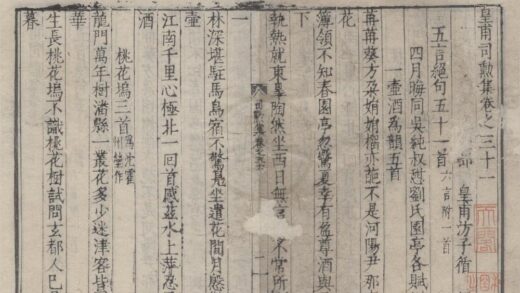 皇甫司勳集卷之三十一
皇甫汸子循
五言絕句五十一首 六言附一首
四月晦同吳純叔過劉氏園亭各賦
一壺酒爲韻五首
苒苒葵方朶娟娟榴亦葩不是河陽尹那
花
簿領不知春園亭忽驚夏幸有盈尊酒與
下
執熱就東皋陶然坐西日無言 來常所
一
林深堪駐馬鳥宿不驚凫坐遣花間月懸
壺
江南千里心極北一回首感茲水上萍忍
酒
桃花塢三首
龍門萬年樹滿縣一叢花多少迷津客皆
華
生長桃花塢不識桃花樹試問玄都人巴
暮